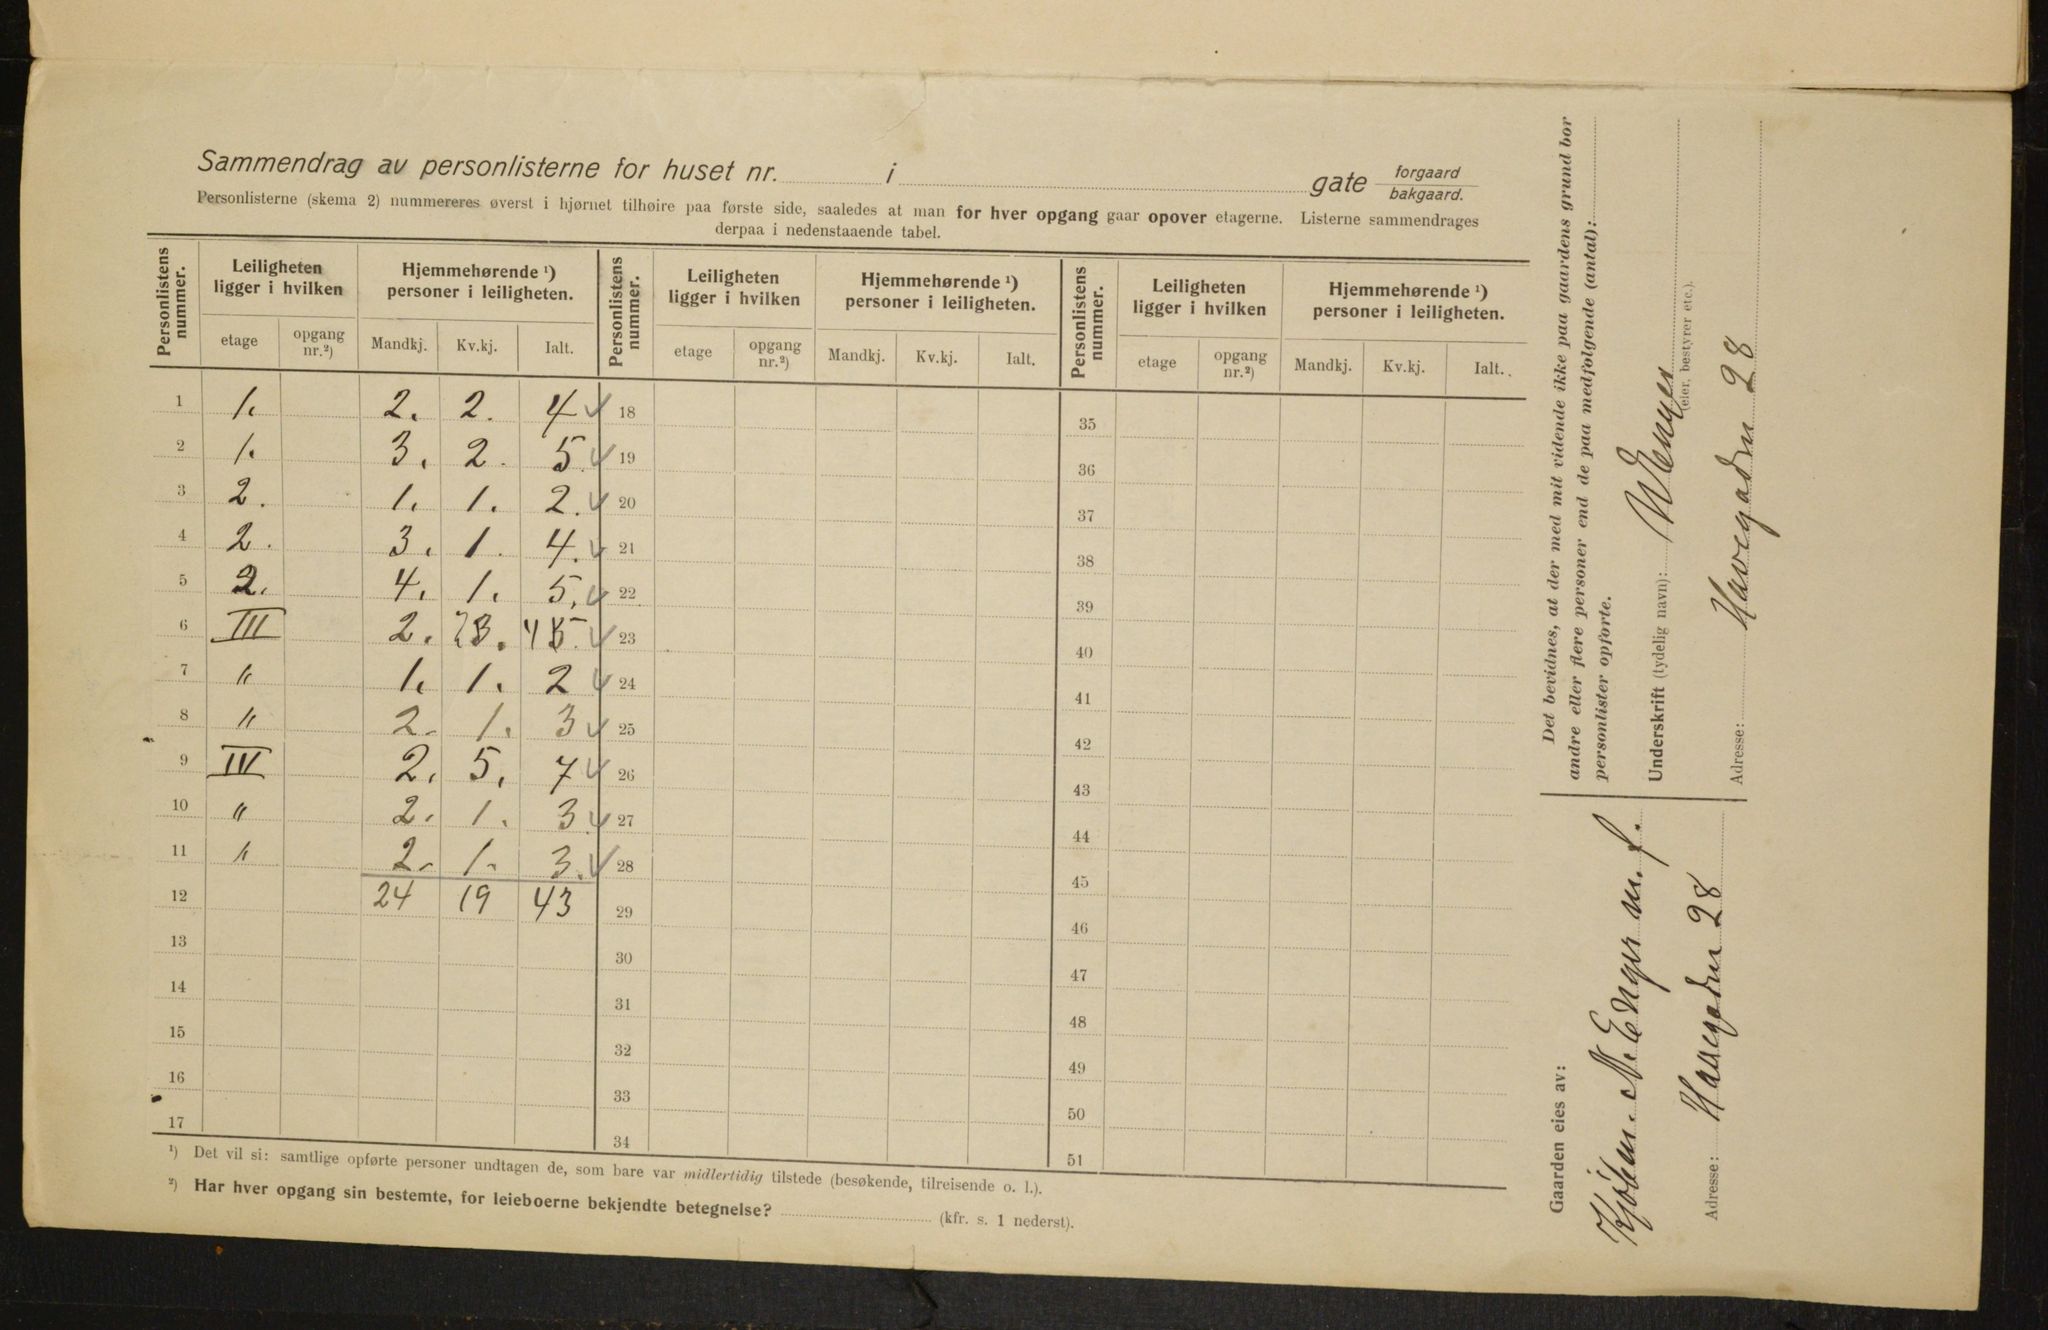 Sammendrag av personlisterne for huset nr. i gate forgaard bakgaard.
Personlisterne (skema 2) nummereres øverst i hjørnet tilhøire paa første side, saaledes at man for hver opgang gaar opover etagerne. Listerne sammendrages
derpaa i nedenstaaende tabel.
Personlistens nummer. Leiligheten ligger i hvilken Hjemmehørende ¹) personer i leiligheten. Personlistens nummer. Leiligheten ligger i hvilken Hjemmehørende ¹) personer i leiligheten. Personlistens nummer. Leiligheten ligger i hvilken Hjemmehørende ¹) personer i leiligheten.
etage opgang nr.²) Mandkj. Kv.kj. Ialt. etage opgang nr.²) Mandkj. Kv.kj. Ialt. etage opgang nr.²) Mandkj. Kv.kj. Ialt.
1 1. 2. 2. 4 18 35
2 1. 3. 2. 5. 19 36
3 2. 1. 1. 2. 20 37
4 2. 3. 1. 4. 21 38
5 2. 4. 1. 5. 22 39
6 III 2. 3. 5. 23 40
7 " 1. 1. 2 24 41
8 " 2. 1. 3 25 42
9 IV 2. 5. 7 26 43
10 " 2. 1. 3 27 44
11 " 2. 1. 3. 28 45
12 24 19 43 29 46
13 30 47
14 31 48
15 32 49
16 33 50
17 34 51
¹) Det vil si: samtlige opførte personer undtagen de, som bare var midlertidig tilstede (besøkende, tilreisende o. l.).
²) Har hver opgang sin bestemte, for leieboerne bekjendte betegnelse? (kfr. s. 1 nederst).
Det bevidnes, at der med mit vidende ikke paa gaardens grund bor
andre eller flere personer end de paa medfølgende (antal):
personlister opførte.
Underskrift (tydelig navn): N Enger
(eier, bestyrer etc.).
Adresse: Havegaden 28
Gaarden eies av:
Kjøbm. N. Enger m. f.
Adresse: Havegaden 28